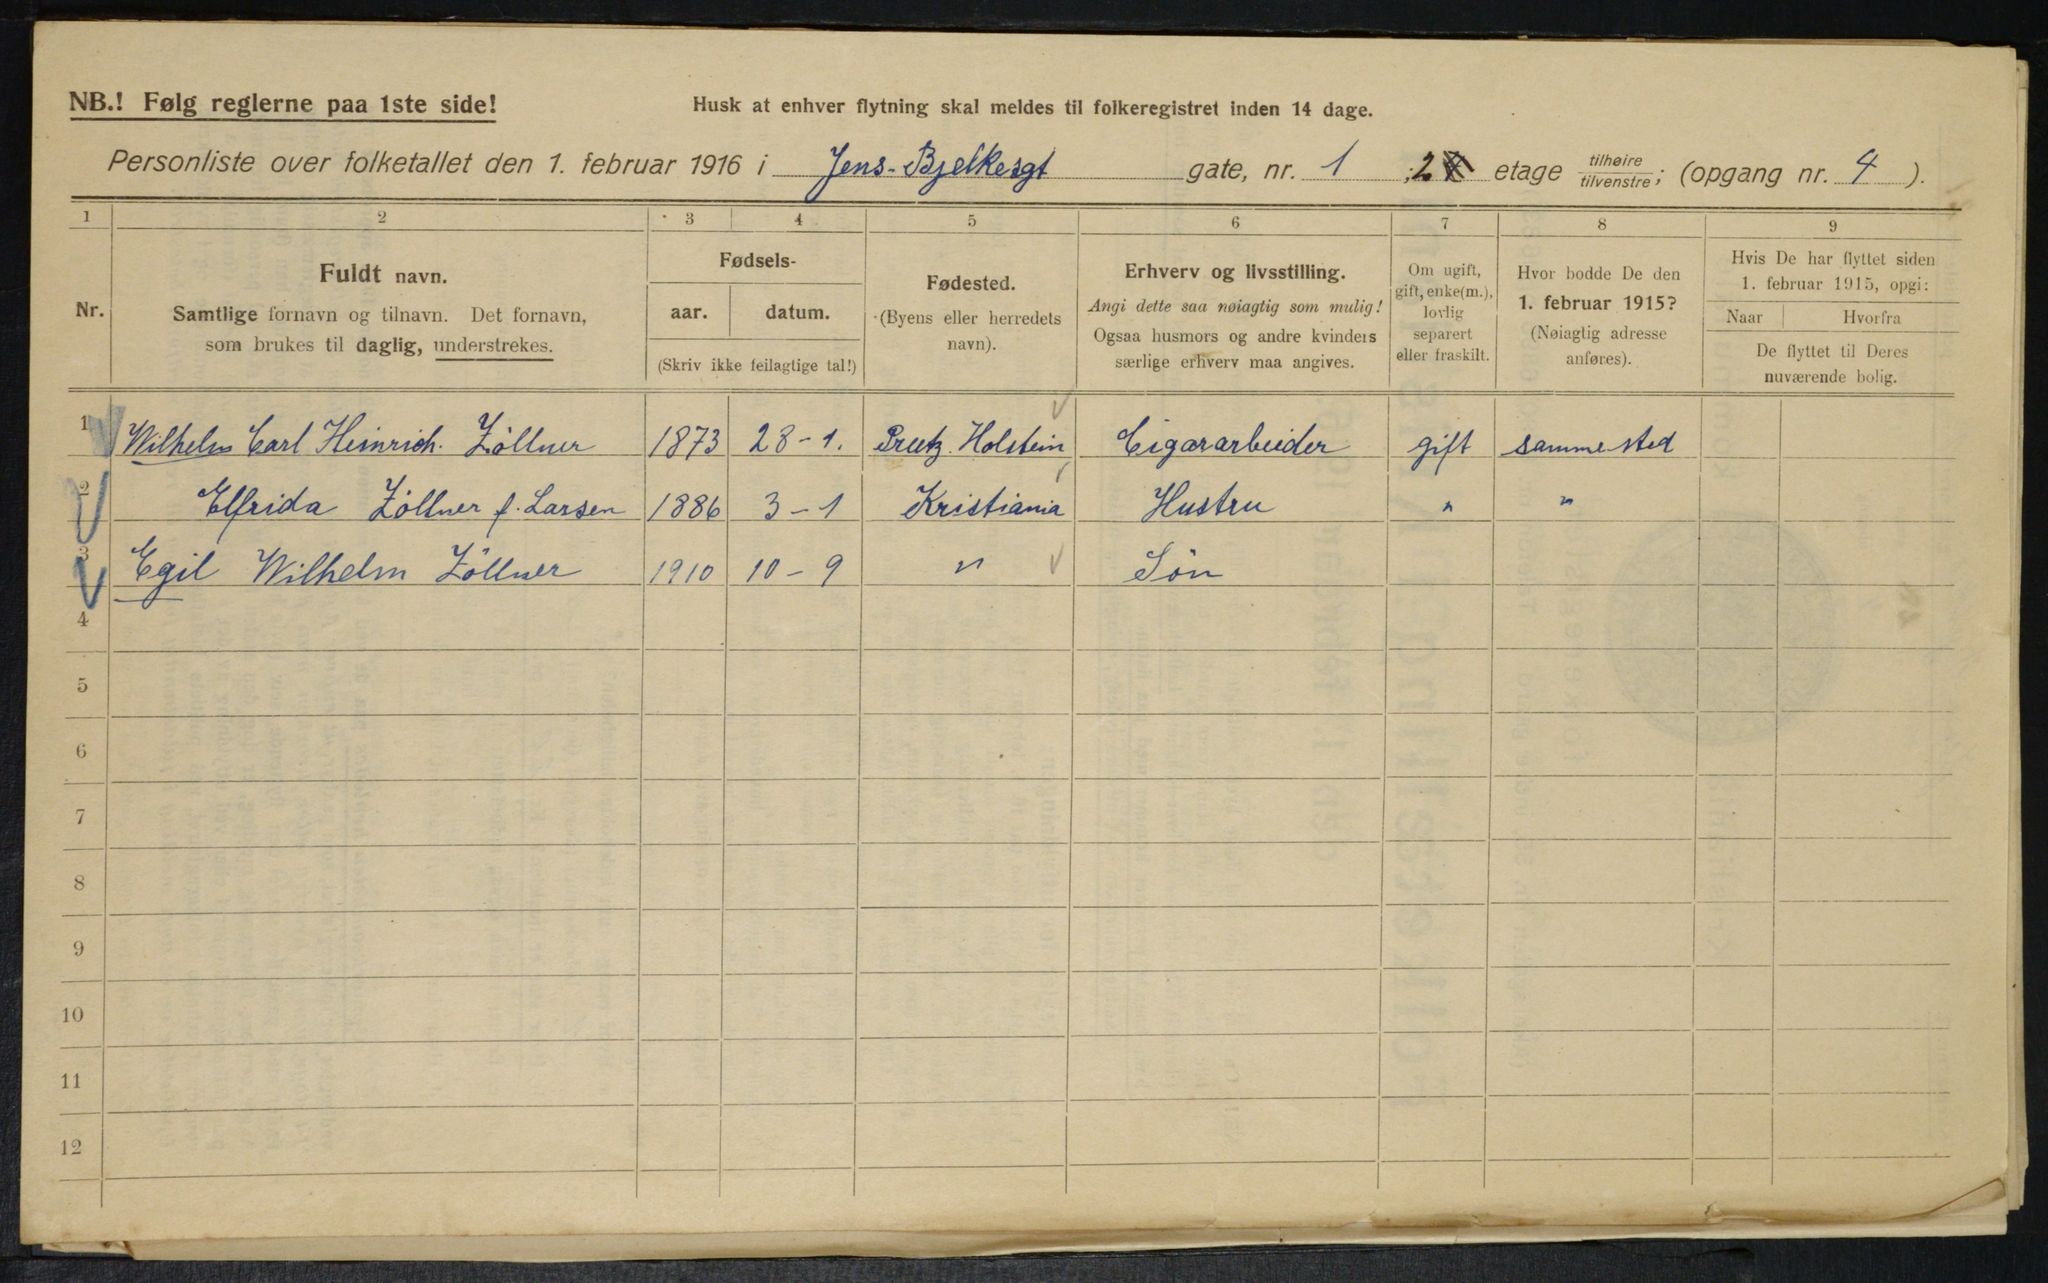 NB.! Følg reglerne paa 1ste side!
Husk at enhver flytning skal meldes til folkeregistret inden 14 dage.
Personliste over folketallet den 1. februar 1916 i Jens-Bjelkesgt gate, nr. 1 ; 2 etage tilhøire/tilvenstre; (opgang nr. 4 ).
1 2 3 4 5 6 7 8 9
Nr.
Fuldt navn.
Samtlige fornavn og tilnavn. Det fornavn,
som brukes til daglig, understrekes.
Fødsels-
aar. datum.
(Skriv ikke feilagtige tal!)
Fødested.
(Byens eller herredets
navn).
Erhverv og livsstilling.
Angi dette saa nøiagtig som mulig!
Ogsaa husmors og andre kvinders
særlige erhverv maa angives.
Om ugift,
gift, enke(m.),
lovlig
separert
eller fraskilt.
Hvor bodde De den
1. februar 1915?
(Nøiagtig adresse
anføres).
Hvis De har flyttet siden
1. februar 1915, opgi:
Naar Hvorfra
De flyttet til Deres
nuværende bolig.
1 Wilhelm Carl Heinrich. Zöllner 1873 28-1. Preetz. Holstein Cigararbeider gift sammested
2 Elfrida Zöllner f. Larsen 1886 3-1 Kristiania Hustru " "
3 Egil Wilhelm Zöllner 1910 10-9 " Sön
4
5
6
7
8
9
10
11
12